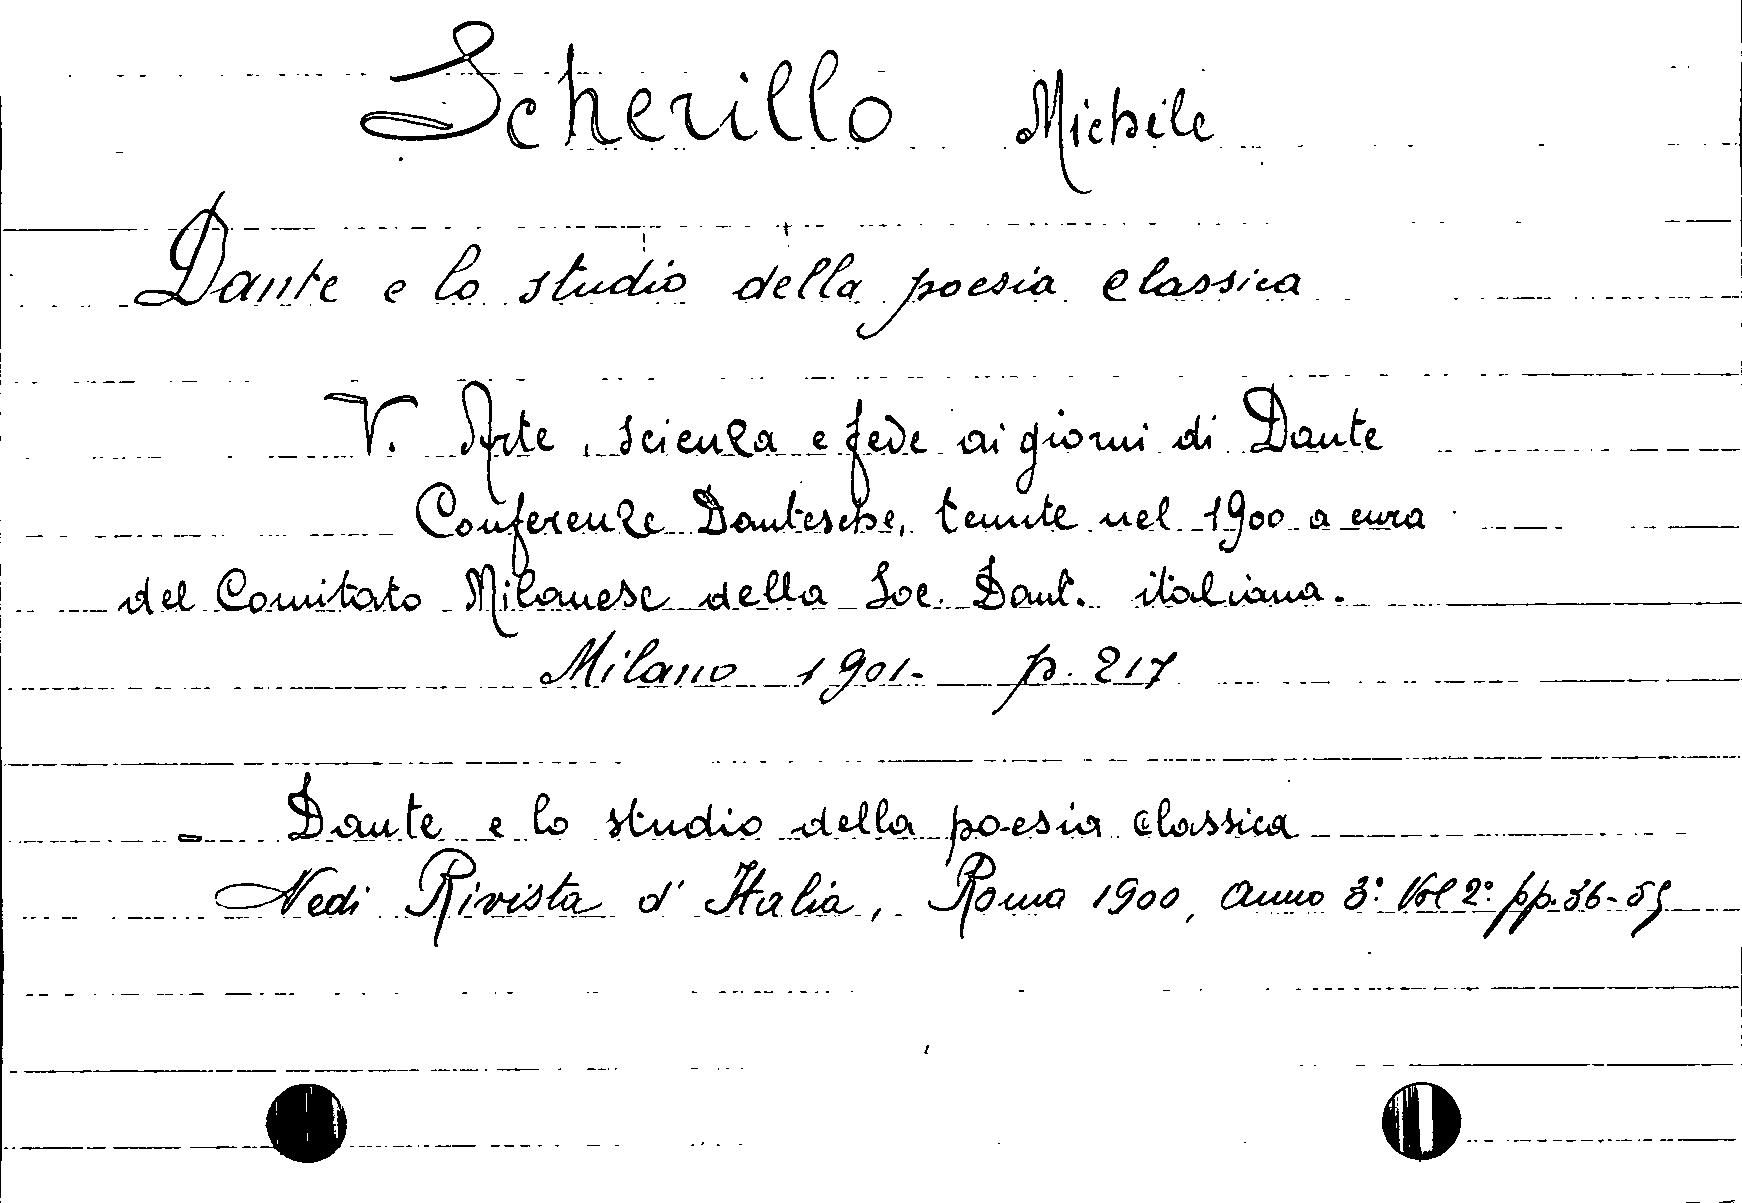 Scherillo Michele
Dante e lo studio della poesia classica
V. Arte, scienza e fede ai giorni di Dante
Conferenze Dantesche, tenute nel 1900 a cura
del Comitato Milanese della Soc. Dant. italiana.
Milano 1901. p. 217
- Dante e lo studio della poesia classica
Vedi Rivista d'Italia, Roma 1900, anno 3° Vol 2° pp. 36-59